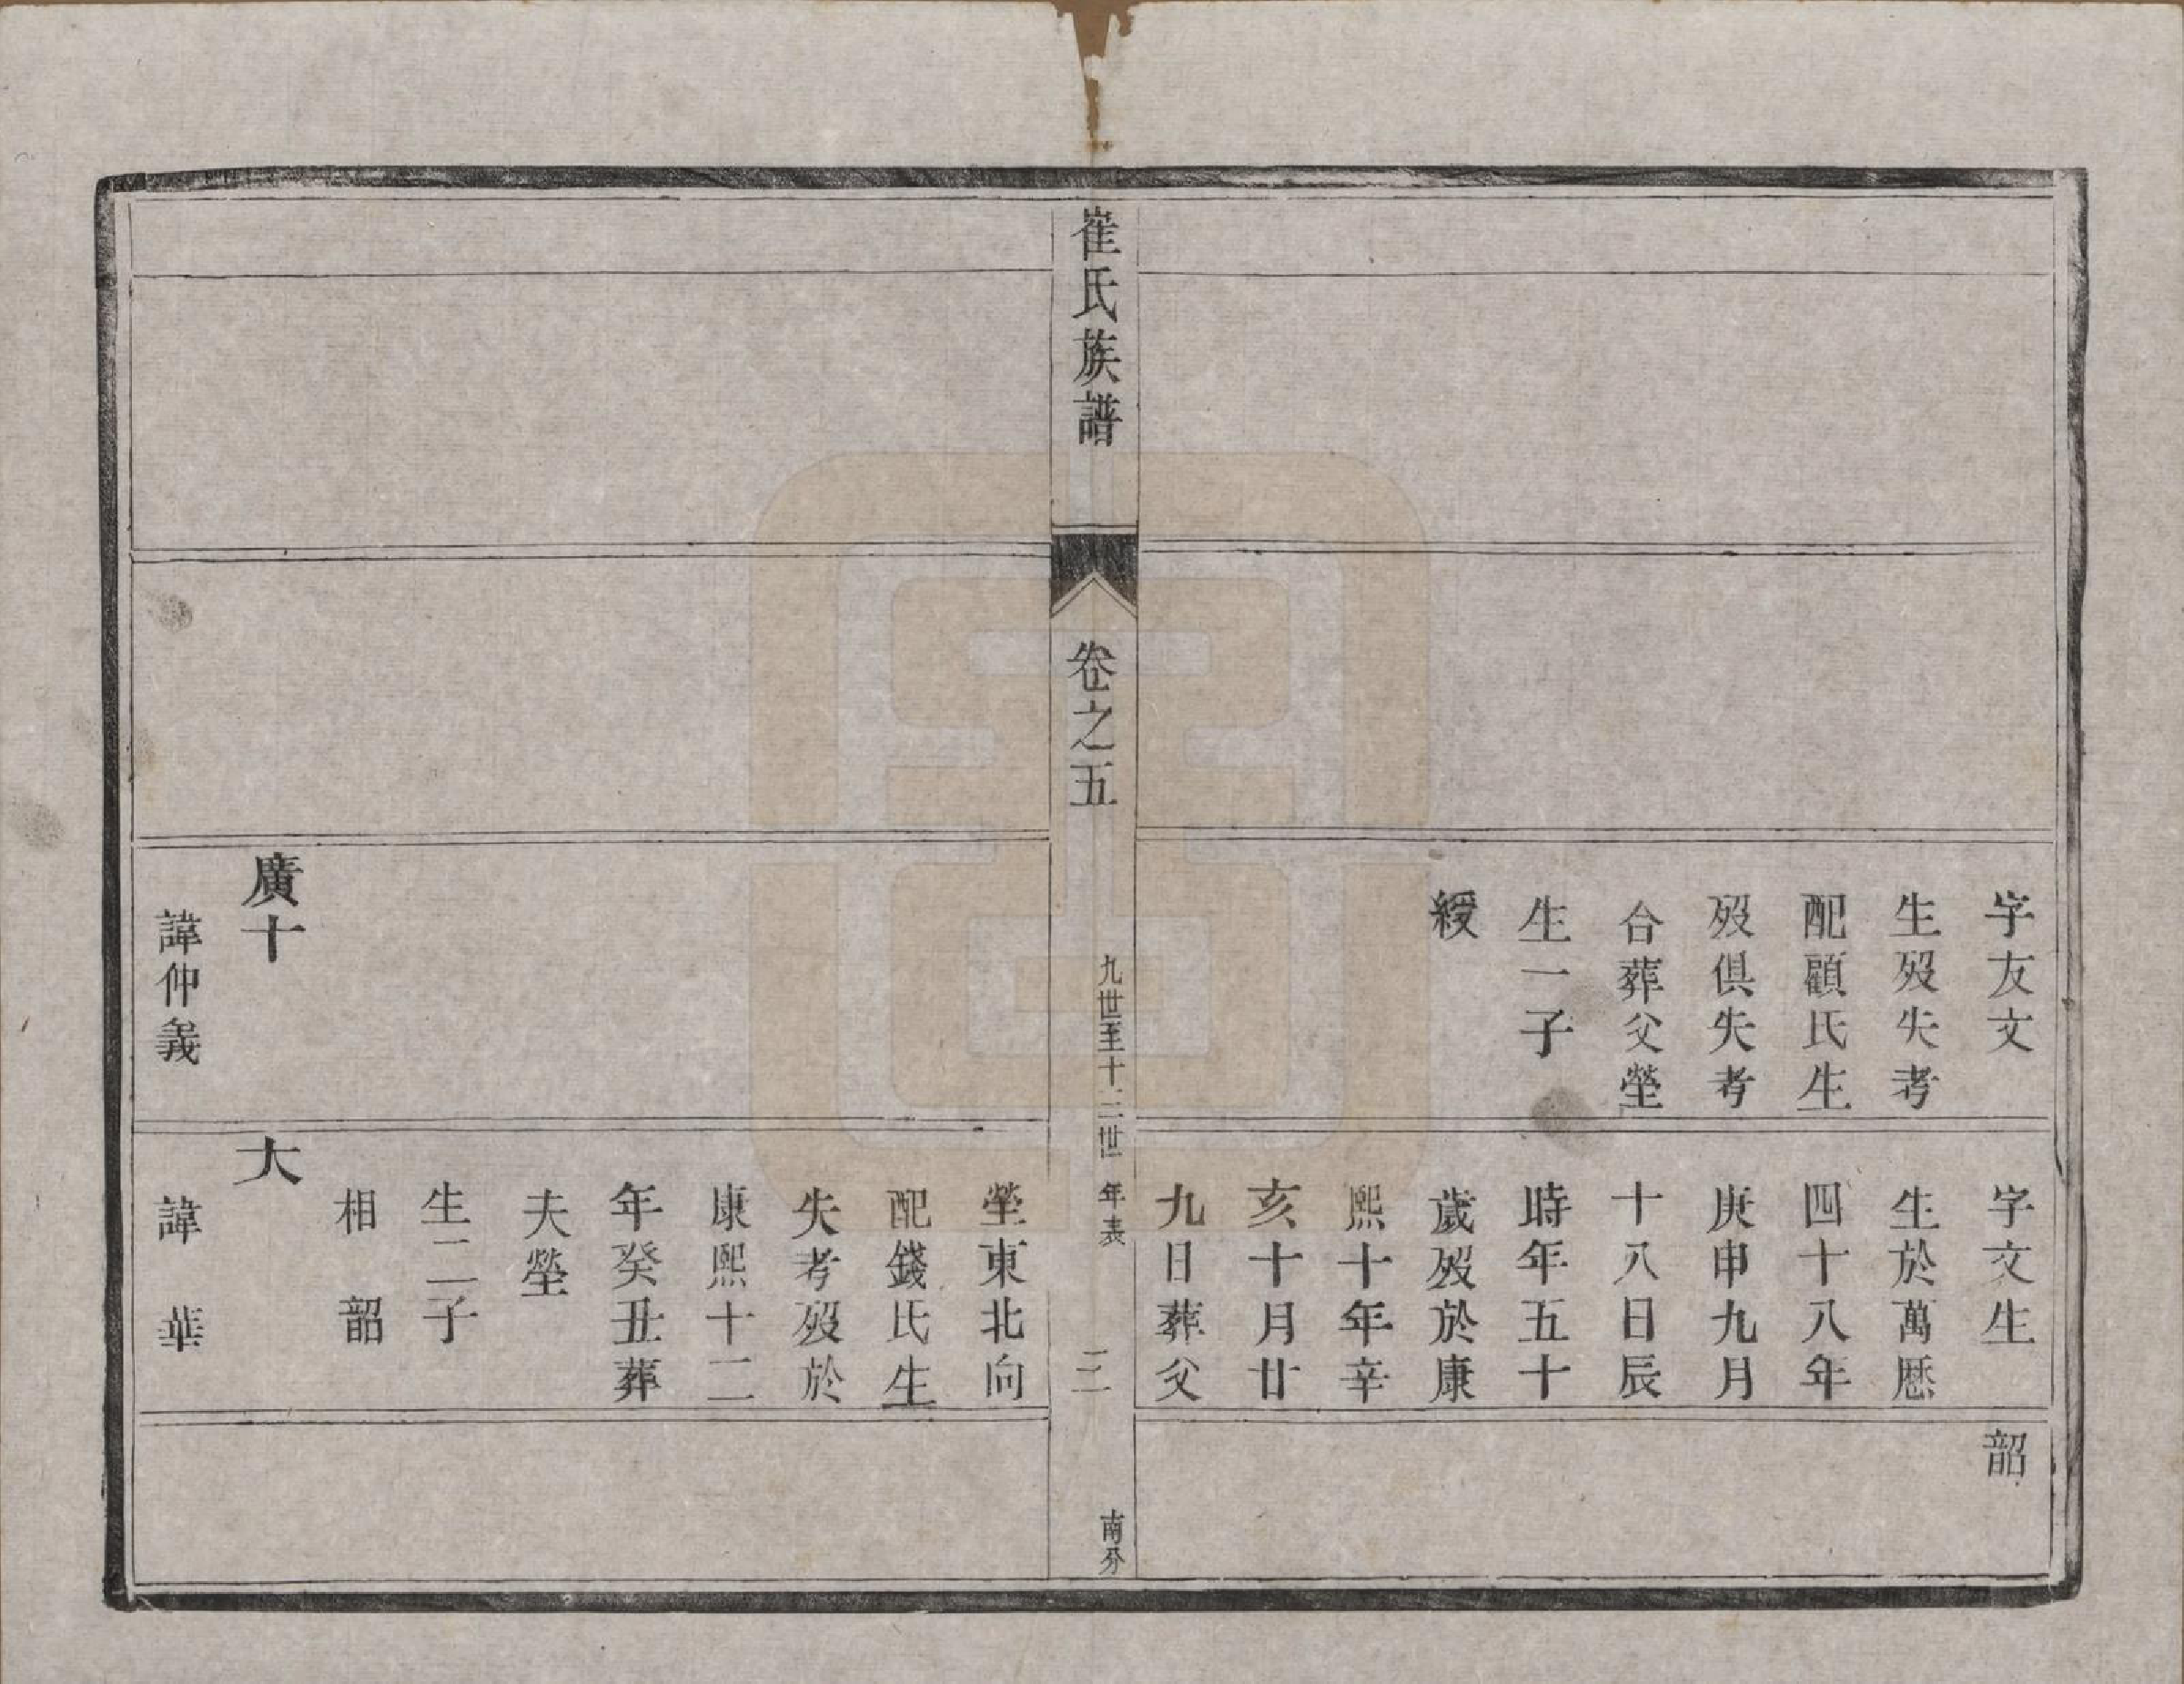 字友文
生歿失考
配顧氏生
歿俱失考
合葬父塋
生一子
綬
字文生
生於萬厯
四十八年
庚申九月
十八日辰
時年五十
歲歿於康
熙十年辛
亥十月廿
九日葬父
韶
崔氏族譜
卷之五
九世至十二世年表
二
南分
塋東北向
配錢氏生
失考歿於
康熙十二
年癸丑葬
夫塋
生二子
相 韶
廣十
諱仲義
大
諱華